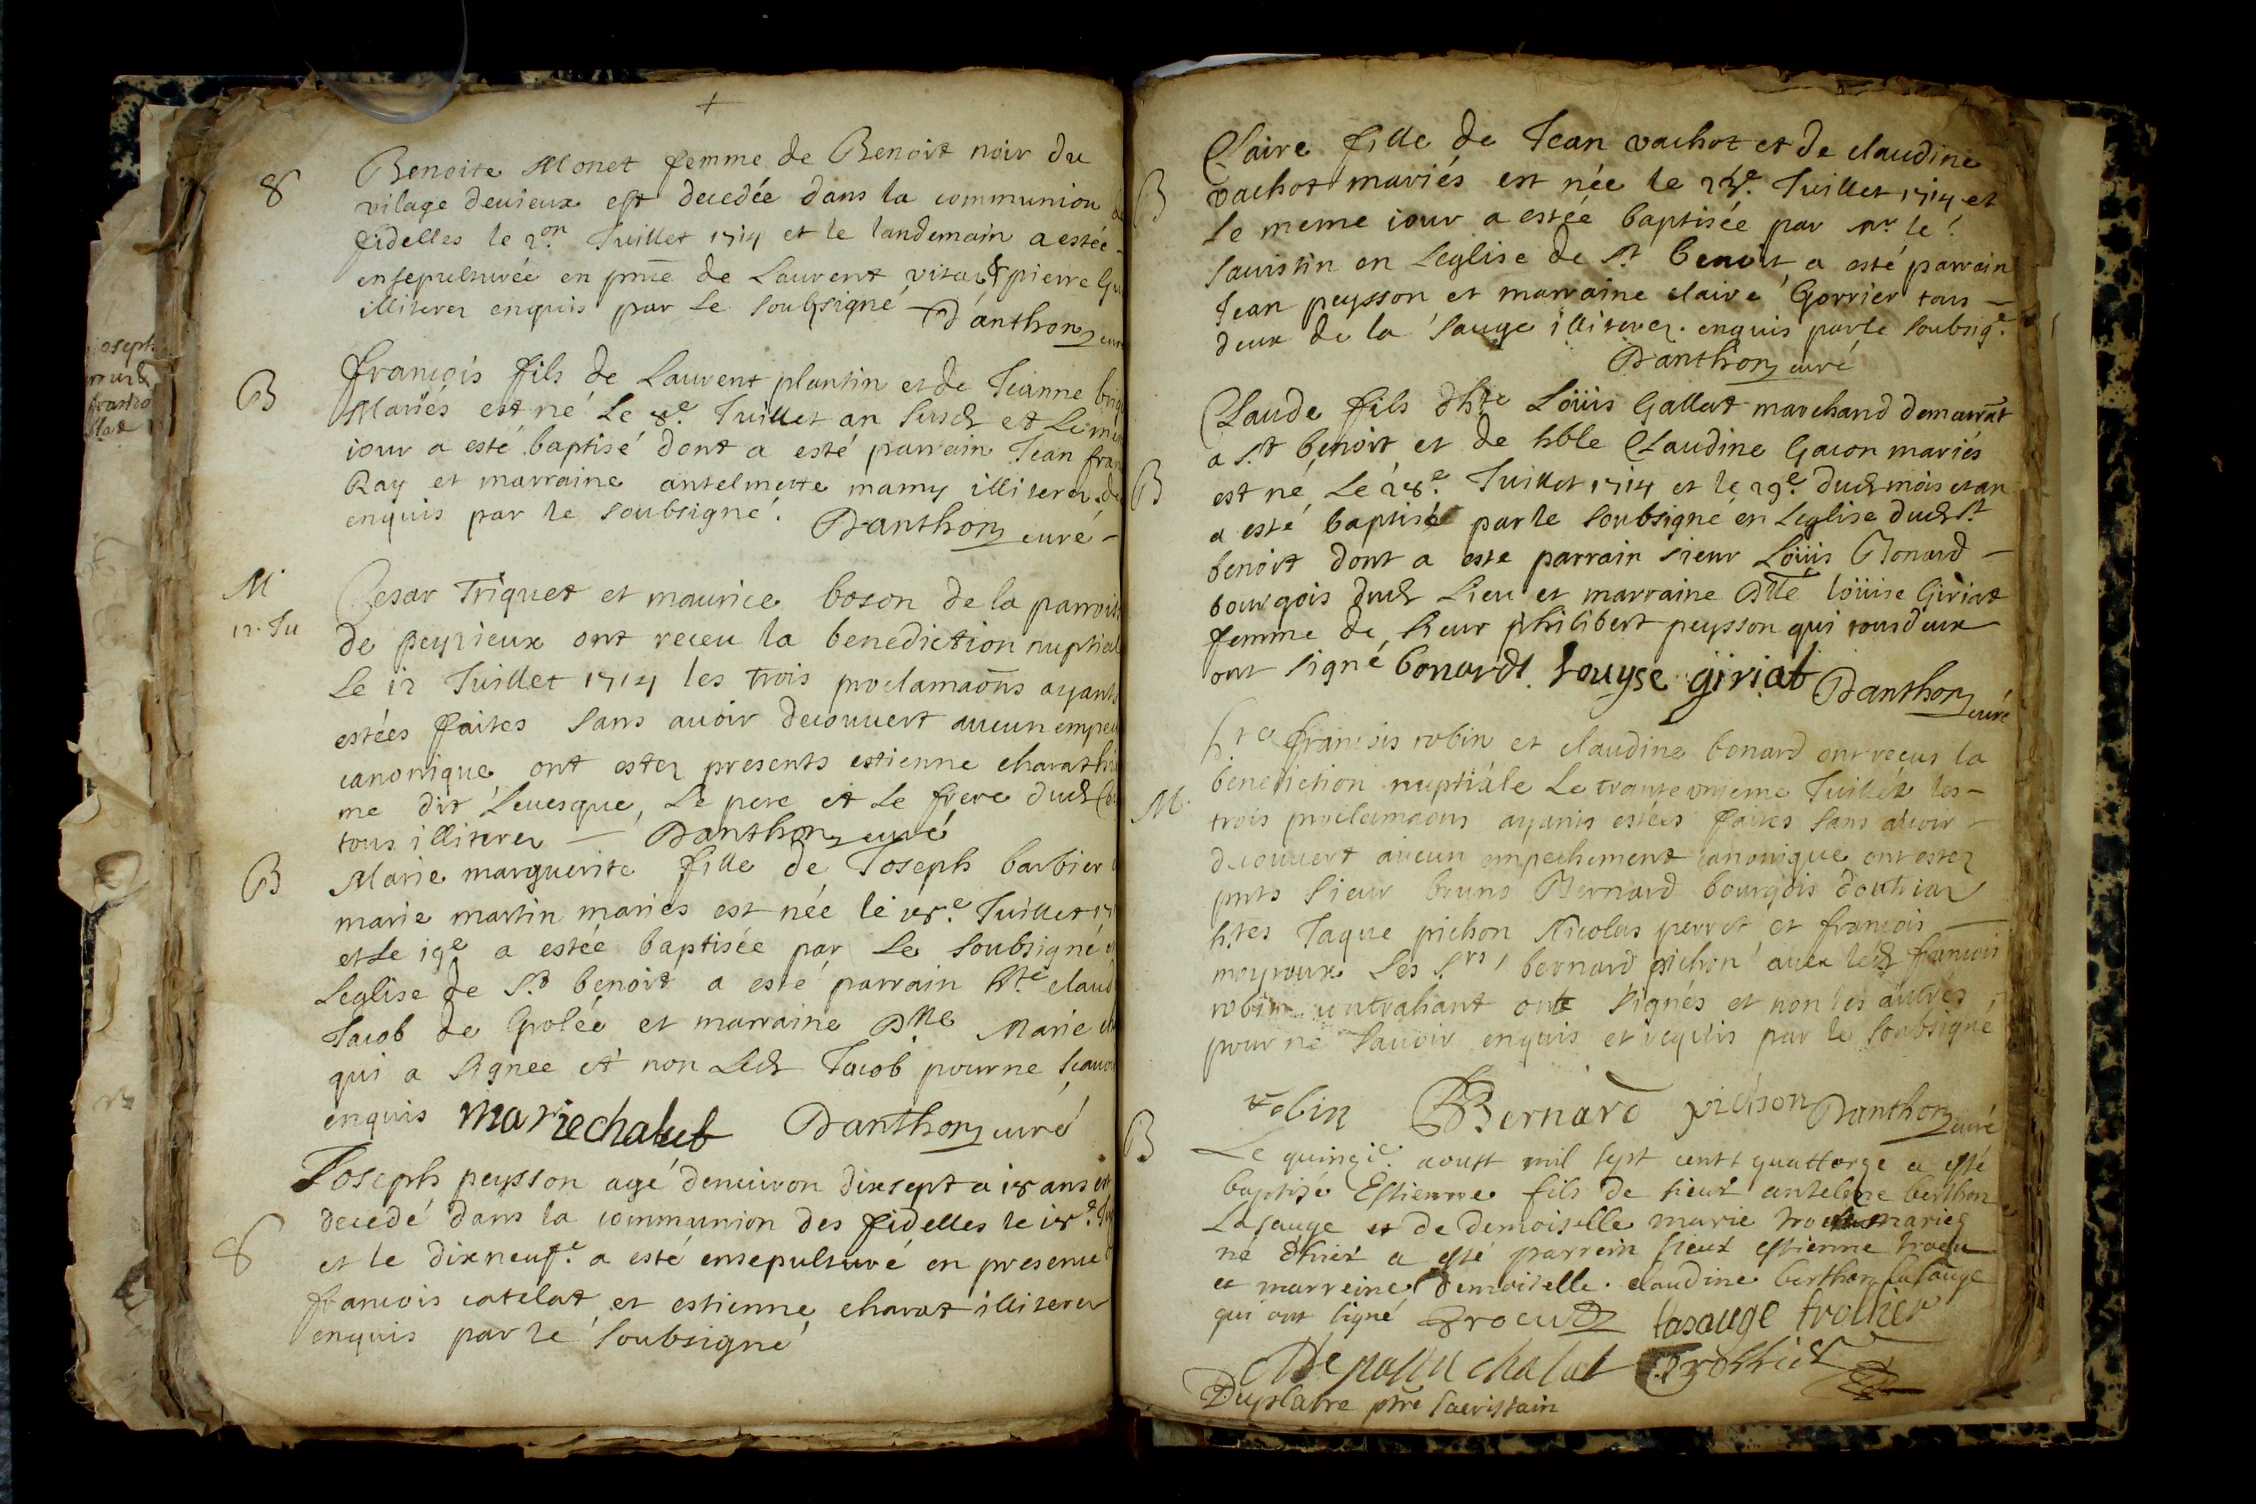 +
8
Benoite Monet femme de Benoit noir du
vilage deuieux est decedée dans la communion
fidelles le 2on Juillet 1714 et le landemain a estée
ensepulturée en pnce de Laurent vital & pierre
illiterez enquis par Le soubsigné D'anthon curé
B
françois fils de Laurent plantin et de Jeanne
Mariés est né Le 8e. Juillet an susdt et Le
iour a esté baptisé dont a esté parrain Jean
Ray et marraine antelmette mamy illiterez
enquis par le soubsigné. Danthon curé
M
12. Ju
Cesar Triquet et maurice boson de la
de peyzieux ont receu la benediction
Le 12 Juillet 1714 les trois proclamaons ayants
estées faites sans auoir decouuert aucun
canonique ont estez presents estienne
me dit Leuesque, Le pere et Le frere dudt
tous illiterez Danthon curé
B
Marie marguerite fille de Joseph barbier
marie martin mariés est née le 18e. Juillet
et Le 19e a estée baptisée par Le soubsigné
Leglise de St benoit a esté parrain hte
Jacob de Grolée et marraine Dlle Marie
qui a signee et non Ledt Jacob pour ne
enquis marie chalut Danthon curé
8
Joseph peysson agé denuiron dixsept a 18 ans
decedé dans la communion des fidelles le 18e.
et le dixneufe. a esté ensepulturé en presence
francois catelat et estienne charat illiterez
enquis par le soubsigné
B
Claire fille de Jean vachot et de claudine
vachot mariés est née le 23e. Juillet 1714 et
Le meme iour a estée baptisée par mr le
sacristin en Leglise de St benoit a esté parrain
Jean peysson et marraine claire Gorrier tous
deux de la sauge illiterez. enquis par le soubsige.
Danthon curé
B
Claude fils dhte Loüis Gallet marchand demeurat
a St benoit et de hble Claudine Gacon mariés
est né Le 28e. Juillet 1714 et le 29e. dudt mois et an
a esté baptisé par le soubsigné en Leglise dudt St
benoit dont a este parrain sieur Loüis Bonard
bourgois dudt Lieu et marraine Dlle loüise Giriat
femme de sieur philibert peysson qui tous deux
ont signé bonardt. Louyse giriat Danthon curé
M.
hte françois robin et claudine bonard ont receus la
benediction nuptiale Le trante unieme Juillet les
trois proclamaons ayants estées faites sans auoir
decouuert aucun empechement canonique ont estez
pnts sieur bruno Bernard bourgois
htes Jaque pichon Nicolas perret et françois
moyroux Les srs, bernard pichon auec ledt françois
robin contrahant ont signés et non les autres
pour ne sauoir enquis et requis par le soubsigné
robin Bernard pichon Danthon curé
B
Le quinzie. aoust mil sept cents quattorze a esté
baptizé Estienne fils de sieur antelme berthon
Lasauge et de demoiselle marie mariez
né d'hier a esté parrein sieur estienne
et marreine demoiselle. claudine berthon lasauge
qui ont signé lasauge trollier
chalut Trollier
Duplatre ptre sacristain